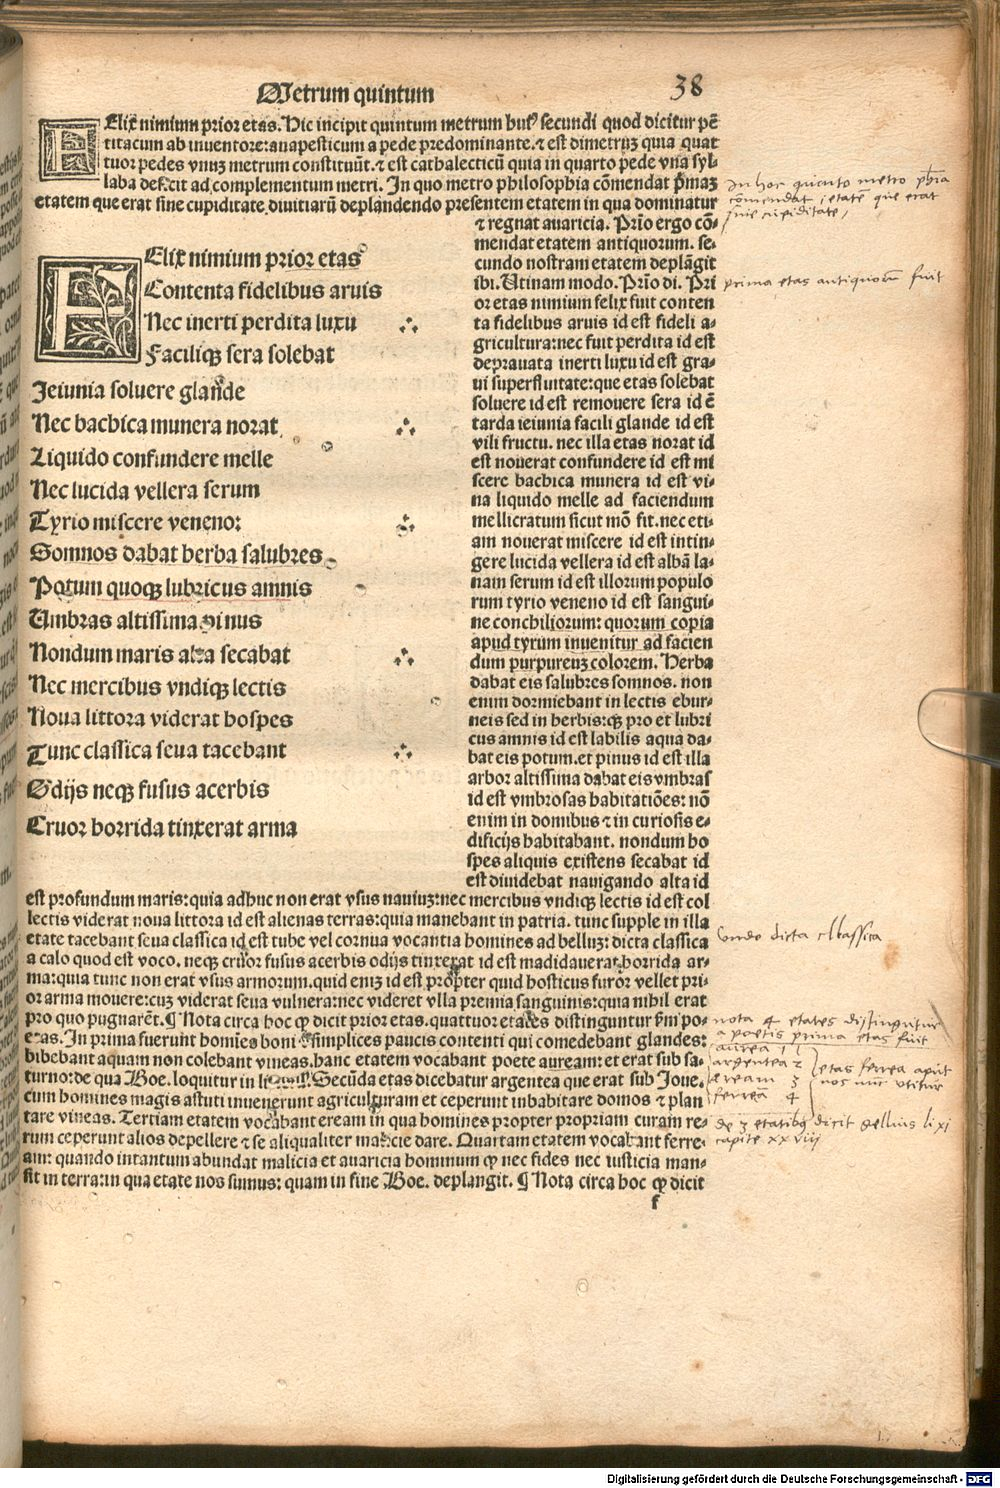 Metrum quintum
38
FElix nimium prior etas. Hic incipit quintum metrum huiꝰ secundi quod dicitur pē
titacum ab inuentore: anapesticum a pede predominante. ⁊ est dimetruꝫ quia quat
tuor pedes vnuꝫ metrum constituūt. ⁊ est cathalecticū quia in quarto pede vna syl⸗
laba deficit ad complementum metri. In quo metro philosophia cōmendat p̄maꝫ
etatem que erat sine cupiditate diuitiarū deplandendo presentem etatem in qua dominatur
⁊ regnat auaricia. Prīo ergo cō⸗
mendat etatem antiquorum. se⸗
cundo nostram etatem deplāgit
ibi. Utinam modo. Prīo di. Pri
or etas nimium felix fuit conten
ta fidelibus aruis id est fideli a⸗
gricultura: nec fuit perdita id est
deprauata inerti luxu id est gra⸗
ui superfluitate: que etas solebat
soluere id est remouere sera id ē
tarda ieiunia facili glande id est
vili fructu. nec illa etas norat id
est nouerat confundere id est mi
scere bachica munera id est vi⸗
na liquido melle ad faciendum
mellicratum sicut mō fit. nec eti⸗
am nouerat miscere id est intin⸗
gere lucida vellera id est albā la⸗
nam serum id est illorum populo
rum tyrio veneno id est sangui⸗
ne conchiliorum: quorum copia
apud tyrum inuenitur ad facien
dum purpureuꝫ colorem. Herba
dabat eis salubres somnos. non
enim dormiebant in lectis ebur⸗
neis sed in herbis: qꝫ pro et lubri
cus amnis id est labilis aqua da⸗
bat eis potum. et pinus id est illa
arbor altissima dabat eis vmbras
id est vmbrosas habitatiōes: nō
enim in domibus ⁊ in curiosis e⸗
dificijs habitabant. nondum ho
spes aliquis existens secabat id
est diuidebat nauigando alta id
FElix nimium prior etas
Contenta fidelibus aruis
Nec inerti perdita luxu
Faciliqꝫ sera solebat
Ieiunia soluere glande
Nec bachica munera norat
Liquido confundere melle
Nec lucida vellera serum
Tyrio miscere venenor
Somnos dabat herba salubres
Potum quoqꝫ lubricus amnis
Umbras altissima pinus
Nondum maris alta secabat
Nec mercibus vndiqꝫ lectis
Noua littora viderat hospes
Tunc classica seua tacebant
Odijs neqꝫ fusus acerbis
Cruor horrida tinxerat arma
est profundum maris: quia adhuc non erat vsus nauiuꝫ: nec mercibus vndiqꝫ lectis id est col
lectis viderat noua littora id est alienas terras: quia manebant in patria. tunc supple in illa
etate tacebant seua classica id est tube vel cornua vocantia homines ad belluꝫ: dicta classica
a calo quod est voco. neqꝫ cruor fusus acerbis odijs tinxerat id est madidauerat horrida ar⸗
ma: quia tunc non erat vsus armorum. quid eniꝫ id est propter quid hosticus furor vellet pri⸗
or arma mouere: cuꝫ viderat seua vulnera: nec videret vlla premia sanguinis: quia nihil erat
pro quo pugnarēt. ¶ Nota circa hoc ꝙ dicit prior etas. quattuor etates distinguntur fm̄ po⸗
etas. In prima fuerunt homies boni ⁊ simplices paucis contenti qui comedebant glandes:
bibebant aquam non colebant vineas. hanc etatem vocabant poete auream: et erat sub sa⸗
turno: de qua Boe. loquitur in Secūda etas dicebatur argentea que erat sub Ioue.
cum homines magis astuti inuenerunt agriculturam et ceperunt inhabitare domos ⁊ plan
tare vineas. Tertiam etatem vocabant eream in qua homines propter propriam curam re⸗
rum ceperunt alios depellere ⁊ se aliqualiter malicie dare. Quartam etatem vocabant ferre⸗
am: quando intantum abundat malicia et auaricia hominum ꝙ nec fides nec iusticia man⸗
sit in terra: in qua etate nos sumus: quam in fine Boe. deplangit. ¶ Nota circa hoc ꝙ dicit
f
In hoc quinto metro phīa
comendat etatē que erat
sine cupiditate
prima etas antiquorū fuit
Unde dicta classica
nota 4 etates distinguntur
a poetis prima etas fuit
aurea 1
argentea 2
eream 3
ferrea 4
etas ferrea
nos nunc
de 3 etatibꝫ dicit gellius li xi
capite xxviij
Digitalisierung gefördert durch die Deutsche Forschungsgemeinschaft - DFG